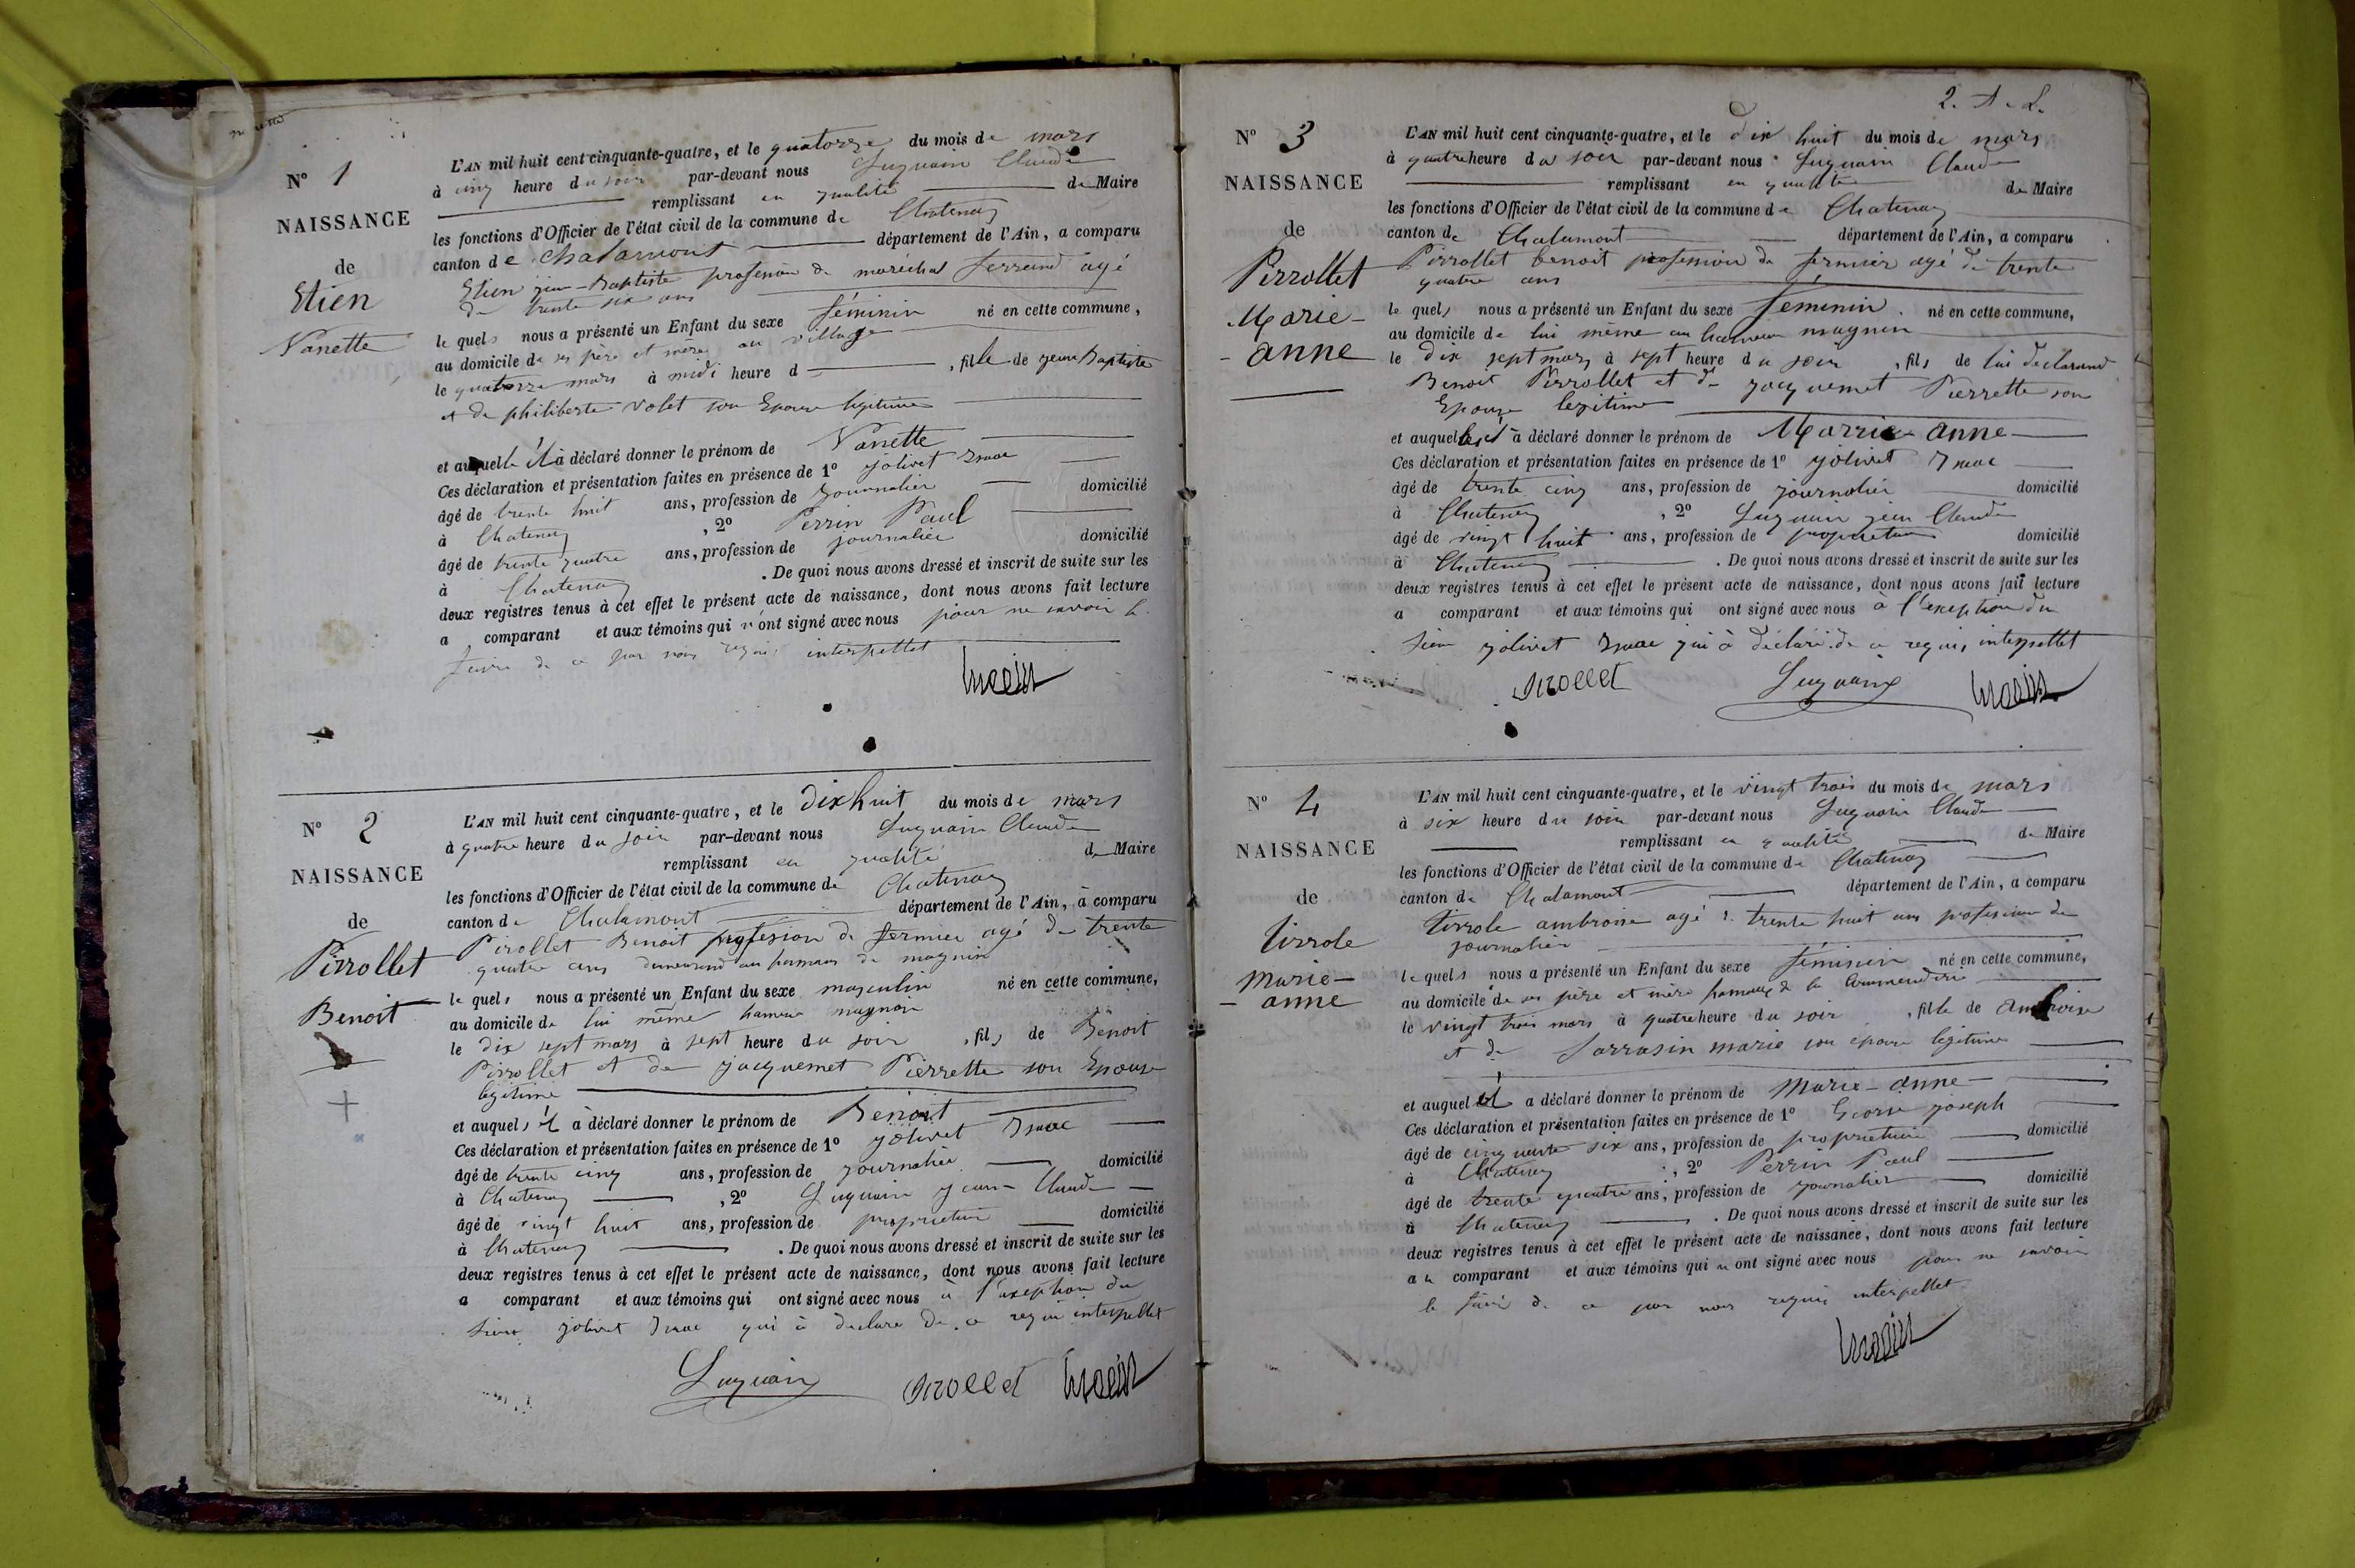 N° 1
NAISSANCE
de
Etien
Nanette
L'AN mil huit cent cinquante-quatre, et le quatorze du mois de mars
à cinq heure du soir par-devant nous Luquain Claude
remplissant en qualité de Maire
les fonctions d'Officier de l'état civil de la commune de Chatenay
canton de Chalamont département de l'Ain, a comparu
Etien jean-Baptiste profession de maréchal ferrand agé
de trente six ans
le quel nous a présenté un Enfant du sexe féminin né en cette commune,
au domicile de ses père et mère au village
le quatorze mars à midi heure d , fille de jean Baptiste
et de philiberte volet son Epouse legitime
et auquelle il à déclaré donner le prénom de Nanette
Ces déclaration et présentation faites en présence de 1° jolivet Isaac
âgé de trente huit ans, profession de journalier domicilié
à Chatenay , 2° Perrin Paul
âgé de trente quatre ans, profession de journalier domicilié
à Chatenay . De quoi nous avons dressé et inscrit de suite sur les
deux registres tenus à cet effet le présent acte de naissance, dont nous avons fait lecture
a comparant et aux témoins qui n'ont signé avec nous pour ne savoir le
faire de ce par nous requis interpellet
N° 2
NAISSANCE
de
Pirrollet
Benoit
L'AN mil huit cent cinquante-quatre, et le dix huit du mois de mars
à quatre heure du soir par-devant nous Luquain Claude
remplissant en qualité de Maire
les fonctions d'Officier de l'état civil de la commune de Chatenay
canton de Chalamont département de l'Ain, à comparu
Pirollet Benoit profession de fermier agé de trente
quatre ans demeurand au hamaux de magnin
le quel nous a présenté un Enfant du sexe masculin né en cette commune,
au domicile de lui même hameau magnin
le dix sept mars à sept heure du soir , fils de Benoit
Pirrollet et de jacquemet Pierrette son Epouse
legitime
et auquel il à déclaré donner le prénom de Benoit
Ces déclaration et présentation faites en présence de 1° jolivet Isaac
âgé de trente cinq ans, profession de journalier domicilié
à Chatenay , 2° Luquain jean Claude
âgé de vingt huit ans, profession de proprietaire domicilié
à Chatenay . De quoi nous avons dressé et inscrit de suite sur les
deux registres tenus à cet effet le présent acte de naissance, dont nous avons fait lecture
a comparant et aux témoins qui ont signé avec nous à l'exeption du
sieur jolivet Isaac qui à déclaré de ce requis interpellet
Luquain
N° 3
NAISSANCE
de
Pirrollet
Marie-
-anne
L'AN mil huit cent cinquante-quatre, et le dix huit du mois de mars
à quatre heure du soir par-devant nous Luquain Claude
remplissant en qualité de Maire
les fonctions d'Officier de l'état civil de la commune de Chatenay
canton de Chalamont département de l'Ain, a comparu
Pirrollet benoit profession de fermier agé de trente
quatre ans
le quel nous a présenté un Enfant du sexe féminin né en cette commune,
au domicile de lui même au hameau magnin
le dix sept mars à sept heure du soir , fils de lui declarand
Benoit Pirrollet et de jacquemet Pierrette son
Epouse legitime
et auquelle il à déclaré donner le prénom de Marrie-anne
Ces déclaration et présentation faites en présence de 1° jolivet Isaac
âgé de trente cinq ans, profession de journalier domicilié
à Chatenay , 2° Luquain jean Claude
âgé de vingt huit ans, profession de proprietaire domicilié
à Chatenay . De quoi nous avons dressé et inscrit de suite sur les
deux registres tenus à cet effet le présent acte de naissance, dont nous avons fait lecture
a comparant et aux témoins qui ont signé avec nous à l'exeption du
sieur jolivet Isaac qui à déclaré de ce requis interpellet
Luquain
N° 4
NAISSANCE
de
tirrole
marie-
-anne
L'AN mil huit cent cinquante-quatre, et le vingt trois du mois de mars
à six heure du soir par-devant nous Luquain Claude
remplissant en qualité de Maire
les fonctions d'Officier de l'état civil de la commune de Chatenay
canton de Chalamont département de l'Ain, a comparu
tirrole ambroise agé de trente huit ans profession de
journalier
le quel nous a présenté un Enfant du sexe féminin né en cette commune,
au domicile de ses père et mère hamaux de la
le vingt trois mars à quatre heure du soir , fille de ambroise
et de Sarrasin marie son épouse legitime
et auquel il a déclaré donner le prénom de marie-anne
Ces déclaration et présentation faites en présence de 1° joseph
âgé de cinquante six ans, profession de proprietaire domicilié
à Chatenay , 2° Perrin Paul
âgé de trente quatre ans, profession de journalier domicilié
à Chatenay . De quoi nous avons dressé et inscrit de suite sur les
deux registres tenus à cet effet le présent acte de naissance, dont nous avons fait lecture
au comparant et aux témoins qui n ont signé avec nous pour ne savoir
le faire de ce par nous requis interpellet